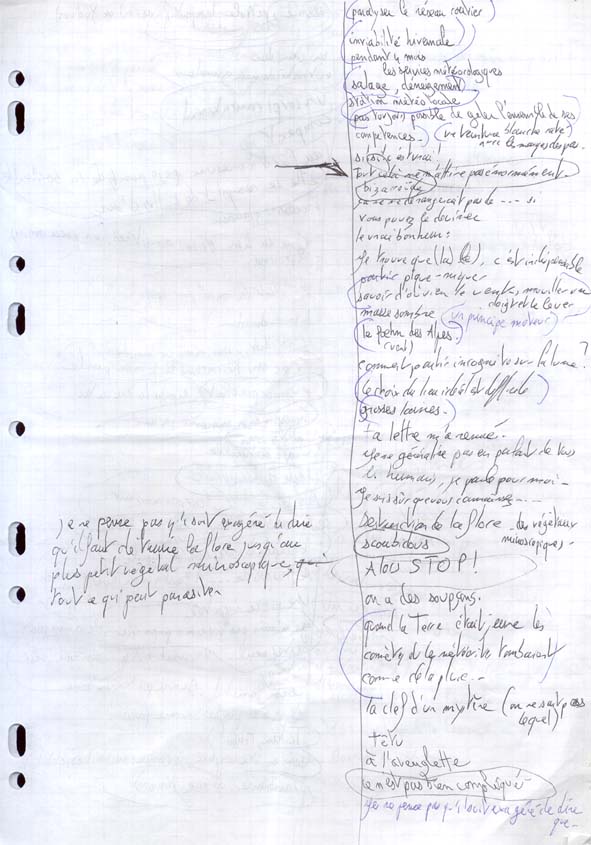 paralyser le réseau routier
inviabilité hivernale
pendant 4 mois
les services météorologiques
salage, déneigement
station météo locale
pas toujours possible de geler l'ensemble de ses
compétences. une teinture blanche
si si si c'est vrai!
Tout cela ne m'attire pas énormément
bizarroïde
ça ne me dérangerait pas de ---- si
vous pouvez le deviner
le vrai bonheur:
Je trouve que (la) (le), c'est indispensable
pour pique-niquer
savoir d'où vient le vent, mouiller un
doigt et le lever
masse sombre (un principe moteur)
le foehn des Alpes.
(vent)
comment partir incognito sur la lune?
le choix du lieu idéal est difficile
grosses larmes.
ta lettre m'a remué.
Je ne généralise pas en parlant de tous
les humains, je parle pour moi-
Je suis sûr que vous connaissez----
Destruction de la flore - des végétaux
microscopiques-
scoubidous
Alors STOP!
on a des soupçons.
quand la Terre était jeune les
comètes et les météorites tombaient
comme de la pluie.--
la clef d'un mystère (on ne sait pas
lequel)
têtu
à l'aveuglette
ce n'est pas bien compliqué
Je ne pense pas qu'il soit exagéré de dire
que--
Je ne pense pas qu'il soit exagéré de dire
qu'il faut détruire la flore jusqu'au
plus petit végétal microscopique, qui
tout ce qui peut parasiter